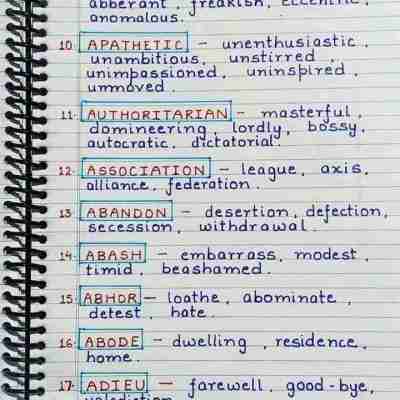 abberant, freakish, eccentric,
anomalous.
10. APATHETIC - unenthusiastic,
unambitious, unstirred,
unimpassioned, uninspired,
unmoved.
11. AUTHORITARIAN - masterful,
domineering, lordly, bossy,
autocratic, dictatorial.
12. ASSOCIATION - league, axis,
alliance, federation.
13 ABANDON - desertion, defection,
secession, withdrawal.
14. ABASH - embarrass, modest,
timid, beashamed.
15. ABHOR - loathe, abominate,
detest, hate.
16. ABODE - dwelling, residence,
home.
17. ADIEU - farewell, good-bye,
valediction.